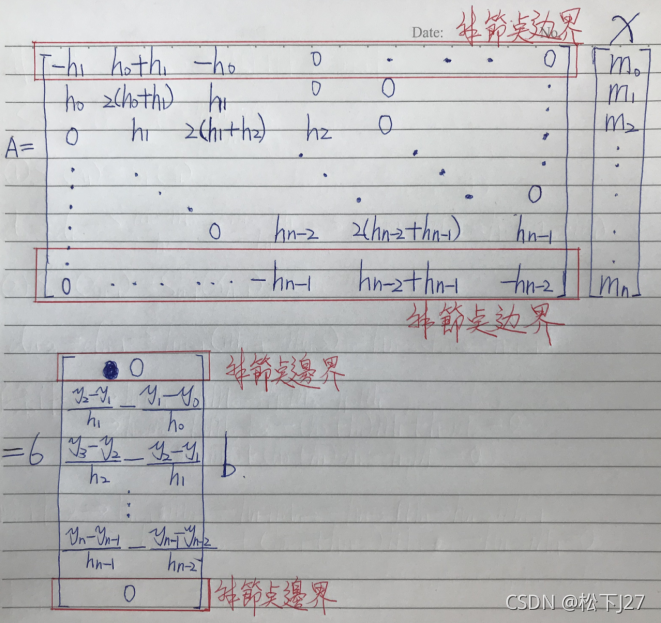 Date: 非節点边界 No.
-h₁ h₀+h₁ -h₀ 0 · · · 0 X
h₀ 2(h₀+h₁) h₁ 0 0 · m₀
0 h₁ 2(h₁+h₂) h₂ 0 · m₁
A= m₂
· · · · · ·
· · · · 0 ·
0 hn-2 2(hn-2+hn-1) hn-1 ·
0 · · · · · · -hn-1 hn-2+hn-1 -hn-2 mn
非節点边界
0 非節点邊界
y₂-y₁/h₁ - y₁-y₀/h₀
=6 y₃-y₂/h₂ - y₂-y₁/h₁ b.
⋮
yn-yn-1/hn-1 - yn-1-yn-2/hn-2
0 非節点邊界
CSDN @松下J27